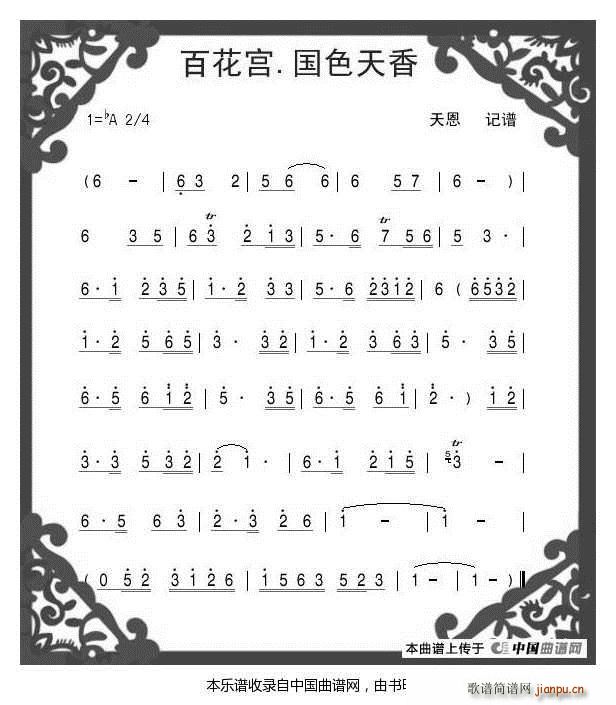 百花宫.国色天香
1=♭A 2/4 天恩 记谱
(6 - | 63 2 | 56 6 | 6 57 | 6 - ) |
6 35 | 63 213 | 5· 6 7 56 | 5 3· |
6· 1 235 | 1· 2 33 | 5· 6 2312 | 6 ( 6532 |
1· 2 565 | 3· 32 | 1· 2 363 | 5· 35 |
6· 5 612 | 5· 35 | 6· 5 61 | 2· ) 12 |
3· 3 532 | 2 1· | 6· 1 215 | 5 3 - |
6· 5 63 | 2· 3 26 | 1 - | 1 - |
(0 52 3126 | 1563 523 | 1 - | 1 - ) ‖
本曲谱上传于 中国曲谱网
本乐谱收录自中国曲谱网，由书
歌谱简谱网 jianpu.cn